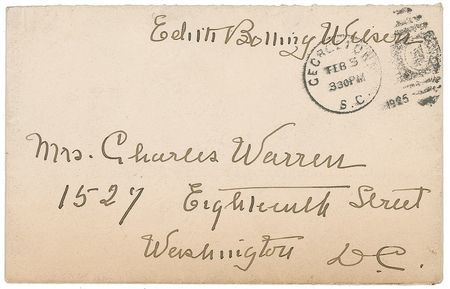 Edith Bolling Wilson
GEORGETOWN
FEB 5
330PM
S.C.
1925
Mrs. Charles Warren
1527 Eighteenth Street
Washington D.C.